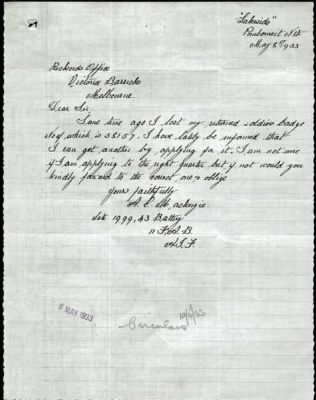 "Lakeside"
May 8th 1933
Records Office
Victoria Barracks
Melbourne
Dear Sir,
Some time ago I lost my returned soldiers badge
which is 38157. I have lately be informed that
I can get another by applying for it. I am not sure
if I am applying to the right quarter but if not would you
kindly forward to the correct one & oblige
Your faithfully
A E Mackenzie
Late 1999, 43 Battery
11 F.A.B.
A.I.F.
MAY 1933
Circulars